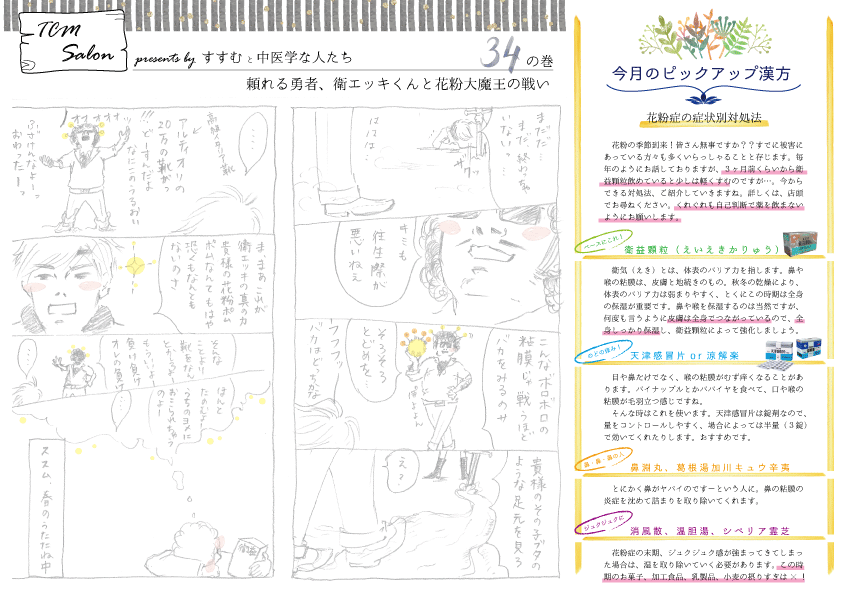 TCM
Salon
presents by すすむと中医学な人たち
34の巻
頼れる勇者、衛エッキくんと花粉大魔王の戦い
まだだ…
まだ、終わらないっ
はては…
ザッ
キミも
往生際が
悪いねえ
こんなボロボロの
粘膜で戦うほど
バカをみるのみ
そろそろ
とどめを…
フッフッ
バカはどっちかな
貴様のそのブタの
ような足元を見ろ
え?
高級イタリア靴
アルティオリの
20万の靴がっ
!!!どーすんだよ
なにこのうるおい
ふざけんなよーっ
おわったー!
オオオオ
(…)
まぁまぁこれが
衛エッキの真の力
貴様の花粉ボム
ボムなんてもはや
恐くもなんとも
ないのさ
そんな
ことより
靴をな、
とっ、
もういいよー
負け負け
オレの負け
…
ほんと
たのむよー
うちのヨメに
おこられちゃう
のよ!
…
ススム、春のうたたね中
今月のピックアップ漢方
花粉症の症状別対処法
花粉の季節到来！皆さん無事ですか？？すでに被害に
あっている方々も多くいらっしゃることと存じます。毎
年のようにお話しておりますが、３ヶ月前くらいから衛
益顆粒飲めていると少しは軽くすむのですが…。今から
できる対処法、ご紹介していきますね。詳しくは、店頭
でお尋ねください。くれぐれも自己判断で薬を飲まない
ようにお願いします。
ベースにこれ！
衛益顆粒（えいえきかりゅう）
衛気（えき）とは、体表のバリア力を指します。鼻や
喉の粘膜は、皮膚と地続きのもの。秋冬の乾燥により、
体表のバリア力は弱まりやすく、とくにこの時期は全身
の保湿が重要です。鼻や喉を保湿するのは当然ですが、
何度も言うように皮膚は全身でつながっているので、全
身しっかり保湿し、衛益顆粒によって強化しましょう。
のどの痒み！
天津感冒片 or 涼解楽
目や鼻だけでなく、喉の粘膜がむず痒くなることがあ
ります。パイナップルとかパパイヤを食べて、口や喉の
粘膜が毛羽立つ感じですね。
そんな時はこれを使います。天津感冒片は錠剤なので、
量をコントロールしやすく、場合によっては半量（３錠）
で効いてくれたりします。おすすめです。
鼻・鼻・鼻の人
鼻淵丸、葛根湯加川キュウ辛夷
とにかく鼻がヤバイのですーという人に。鼻の粘膜の
炎症を沈めて詰まりを取り除いてくれます。
ジュクジュクに
消風散、温胆湯、シベリア霊芝
花粉症の末期、ジュクジュク感が強まってきてしまっ
た場合は、湿を取り除いていく必要があります。この時
期のお菓子、加工食品、乳製品、小麦の摂りすぎは×！